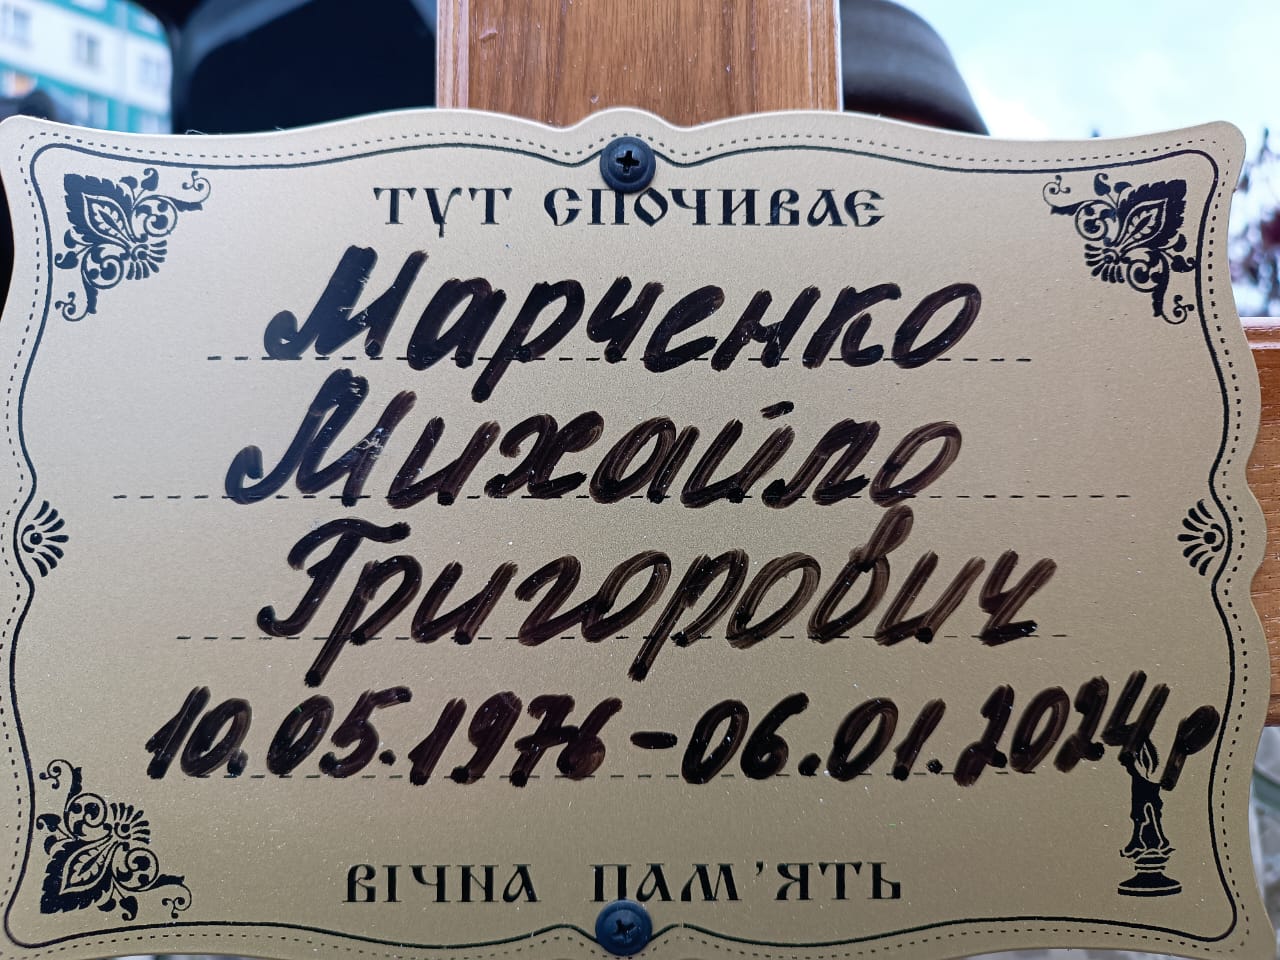 ТУТ СПОЧИВАЄ
Марченко
Михайло
Григорович
10.05.1976-06.01.2024р
ВІЧНА ПАМ'ЯТЬ